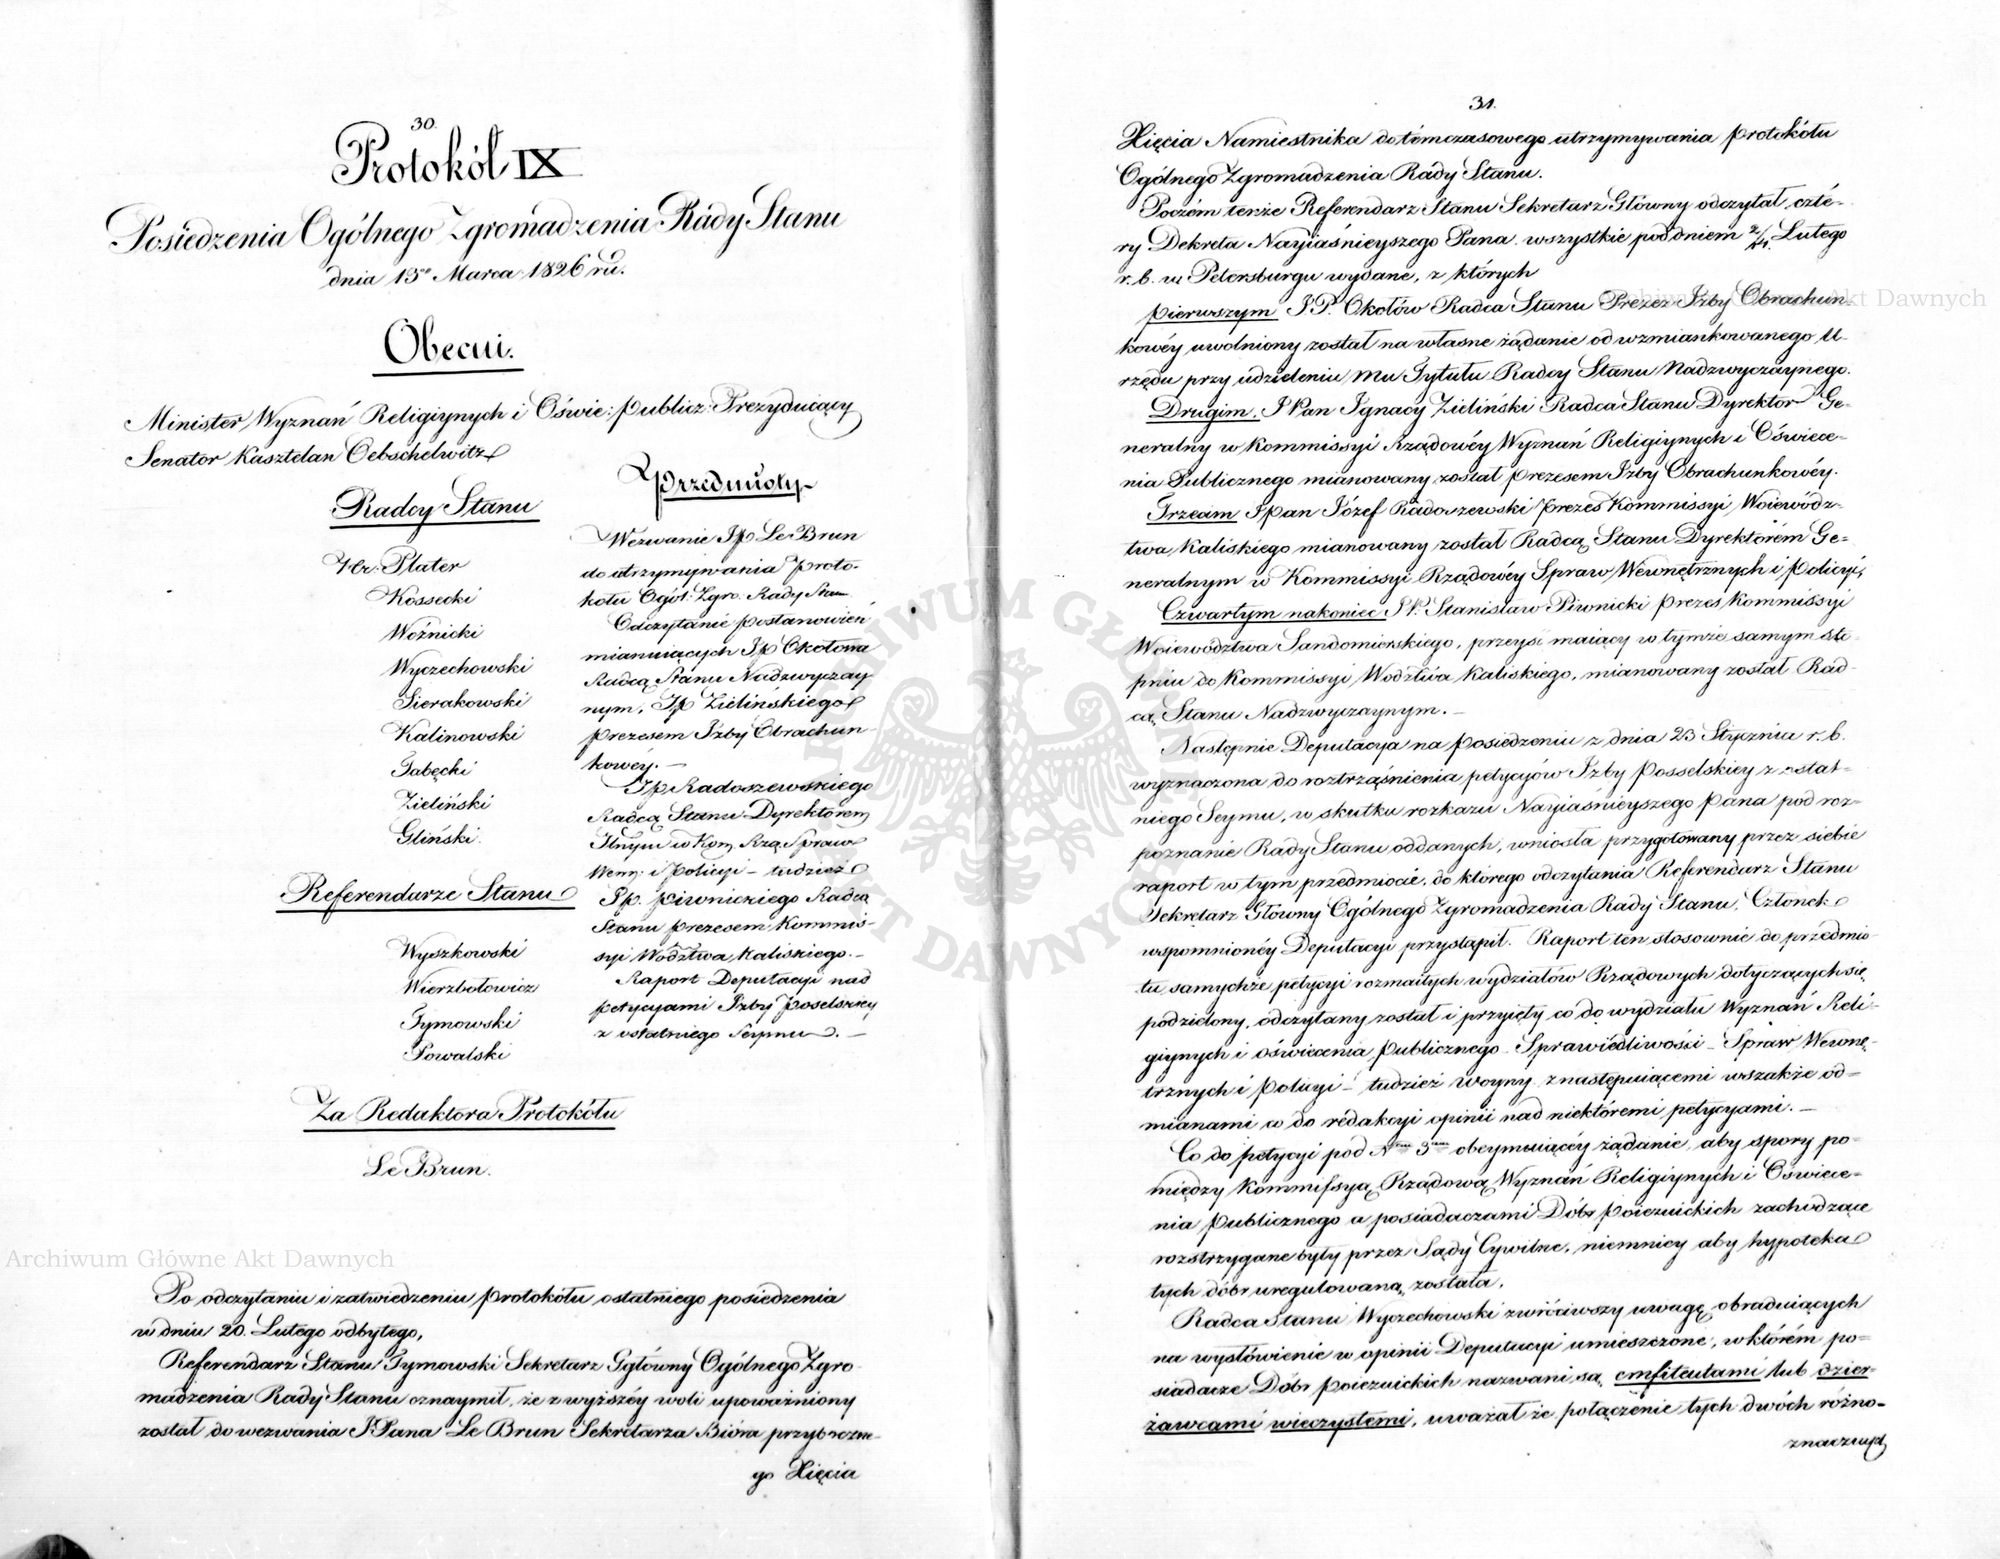 30.
Protokół IX
Posiedzenia Ogólnego Zgromadzenia Rady Stanu
dnia 13go Marca 1826 ru.
Obecni.
Minister Wyznań Religiynych i Oświe: publicz: Prezyduiący
Senator Kasztelan Oebschelwitz
Radcy Stanu
Hr. Plater
Kossecki
Woźnicki
Wyczechowski
Sierakowski
Kalinowski
Tabęcki
Zieliński
Gliński.
Referendarze Stanu
Wyszkowski
Wierzbołowicz
Tymowski
Powalski
Za Redaktora Protokółu
Le Brun.
Przedmioty
Wezwanie Jp Le Brun
do utrzymywania proto-
kołu Ogól: Zgro: Rady Stanu
Odczytanie postanowień
mianuiących Jp Okołowa
Radcą Stanu Nadzwyczay
nym, Jp Zielińskiego
prezesem Izby Obrachun-
kowéy. —
Jp Radoszewskiego
Radcą Stanu Dyrektorem
Jlnym w Kom. Rzą. Spraw
Wewn: i Policyi – tudzież
Jp. Piwnickiego Radcą
Stanu prezesem Kommis-
syi Wodztwa Kaliskiego. –
Raport Deputacyi nad
petycyami Izby Poselskiey
z ostatniego Seymu. —
Po odczytaniu i zatwiedzeniu protokółu ostatniego posiedzenia
w dniu 20. Lutego odbytego,
Referendarz Stanu Tymowski Sekretarz Główny Ogólnego Zgro-
madzenia Rady Stanu oznaymił, że z wyższéy woli upoważniony
został do wezwania JPana Le Brun Sekretarza Bióra przyboczne-
go Xięcia
31.
Xięcia Namiestnika do témczasowego utrzymywania protokółu
Ogólnego Zgromadzenia Rady Stanu.
Poczém tenże Referendarz Stanu Sekretarz Główny odczytał czté-
ry Dekreta Nayiaśnieyszego Pana wszystkie pod dniem 2/14 Lutego
r. b. w Petersburgu wydane, z których
pierwszym J.P. Okołów Radca Stanu Prezes Izby Obrachun-
kowéy uwolniony został na własne żądanie od wzmiankowanego U-
rzędu przy udzieleniu mu Tytułu Radcy Stanu Nadzwyczaynego.
Drugim. JPan Ignacy Zieliński Radca Stanu Dyrektor Ge-
neralny w Kommissyi Rządowéy Wyznań Religiynych i Oświece-
nia Publicznego mianowany został prezesem Izby Obrachunkowéy.
Trzecim JPan Józef Radoszewski Prezes Kommissyi Woiewódz-
twa Kaliskiego mianowany został Radcą Stanu Dyrektorém Ge-
neralnym w Kommissyi Rządowéy Spraw Wewnętrznych i Policyi,
Czwartym nakoniec JP. Stanisław Piwnicki prezes Kommissyi
Woiewodztwa Sandomierskiego, przeyść maiący w tymże samym sto-
pniu do Kommissyi Wodztwa Kaliskiego, mianowany został Rad-
cą Stanu Nadzwyczaynym. —
Następnie Deputacya na posiedzeniu z dnia 23 Stycznia r. b.
wyznaczona do roztrząśnienia petycyów Izby Posselskiey z ostat-
niego Seymu, w skutku rozkazu Nayiaśnieyszego Pana pod roz-
poznanie Rady Stanu oddanych, wniosła przygotowany przez siebie
raport w tym przedmiocie, do którego odczytania Referendarz Stanu
Sekretarz Główny Ogólnego Zgromadzenia Rady Stanu, Członek
wspomnionéy Deputacyi przystąpił. Raport ten stosownie do przedmio-
tu samychże petycyi rozmaitych wydziałów Rządowych dotyczących się
podzielony, odczytany został i przyięty co do wydziału Wyznań Reli-
giynych i oświecenia publicznego – Sprawiedliwości – Spraw Wewnę-
trznych i Policyi – tudzież Woyny z następuiącemi wszakże od-
mianami co do rédakcyi opinii nad niektóremi petycyami. —
Co do petycyi pod Nrem 3cim obeymuiącéy żądanie, aby spory po-
między Kommissyą Rządową Wyznań Religiynych i Oświece-
nia publicznego a posiadaczami Dóbr poiezuickich zachodzące
rozstrzygane były przez Sądy Cywilne, niemniéy aby hypoteka
tych dóbr uregulowaną została.
Radca Stanu Wyczechowski zwróciwszy uwagę obraduiących
na wysłówienie w opinii Deputacyi umieszczone, w którém po-
siadacze Dóbr poiezuickich nazwani są, emfiteutami lub dzier-
żawcami wieczystemi, uważał że połączenie tych dwóch różno-
znacznych
Archiwum Główne Akt Dawnych
Archiwum Główne Akt Dawnych
ARCHIWUM GŁÓWNE AKT DAWNYCH